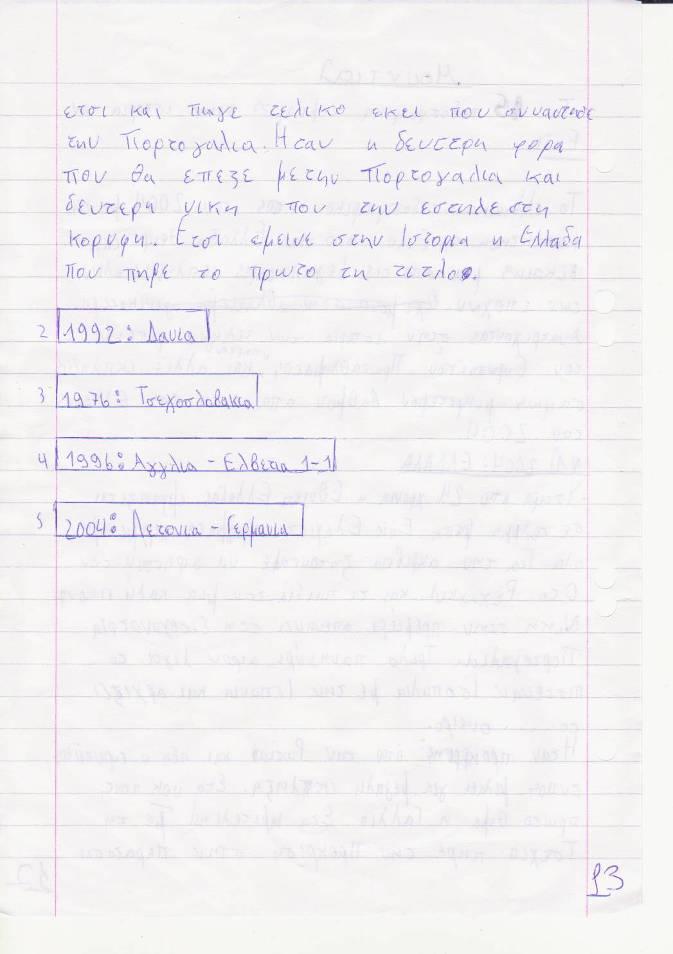 ετσι και πηγε τελικο εκει που συναντησε
την Πορτογαλια. Ηταν η δευτερη φορα
που θα επεξε με την Πορτογαλια και
δευτερη νικη που την εστηλε στη
κορυφη. Ετσι εμεινε στην Ιστορια η Ελλαδα
που πηρε το πρωτο τη τιτλο.
2 1992: Δανια
3 1976: Τσεχοσλοβακια
4 1996: Αγγλια - Ελβετια 1-1
5 2004: Λετονια - Γερμανια
13